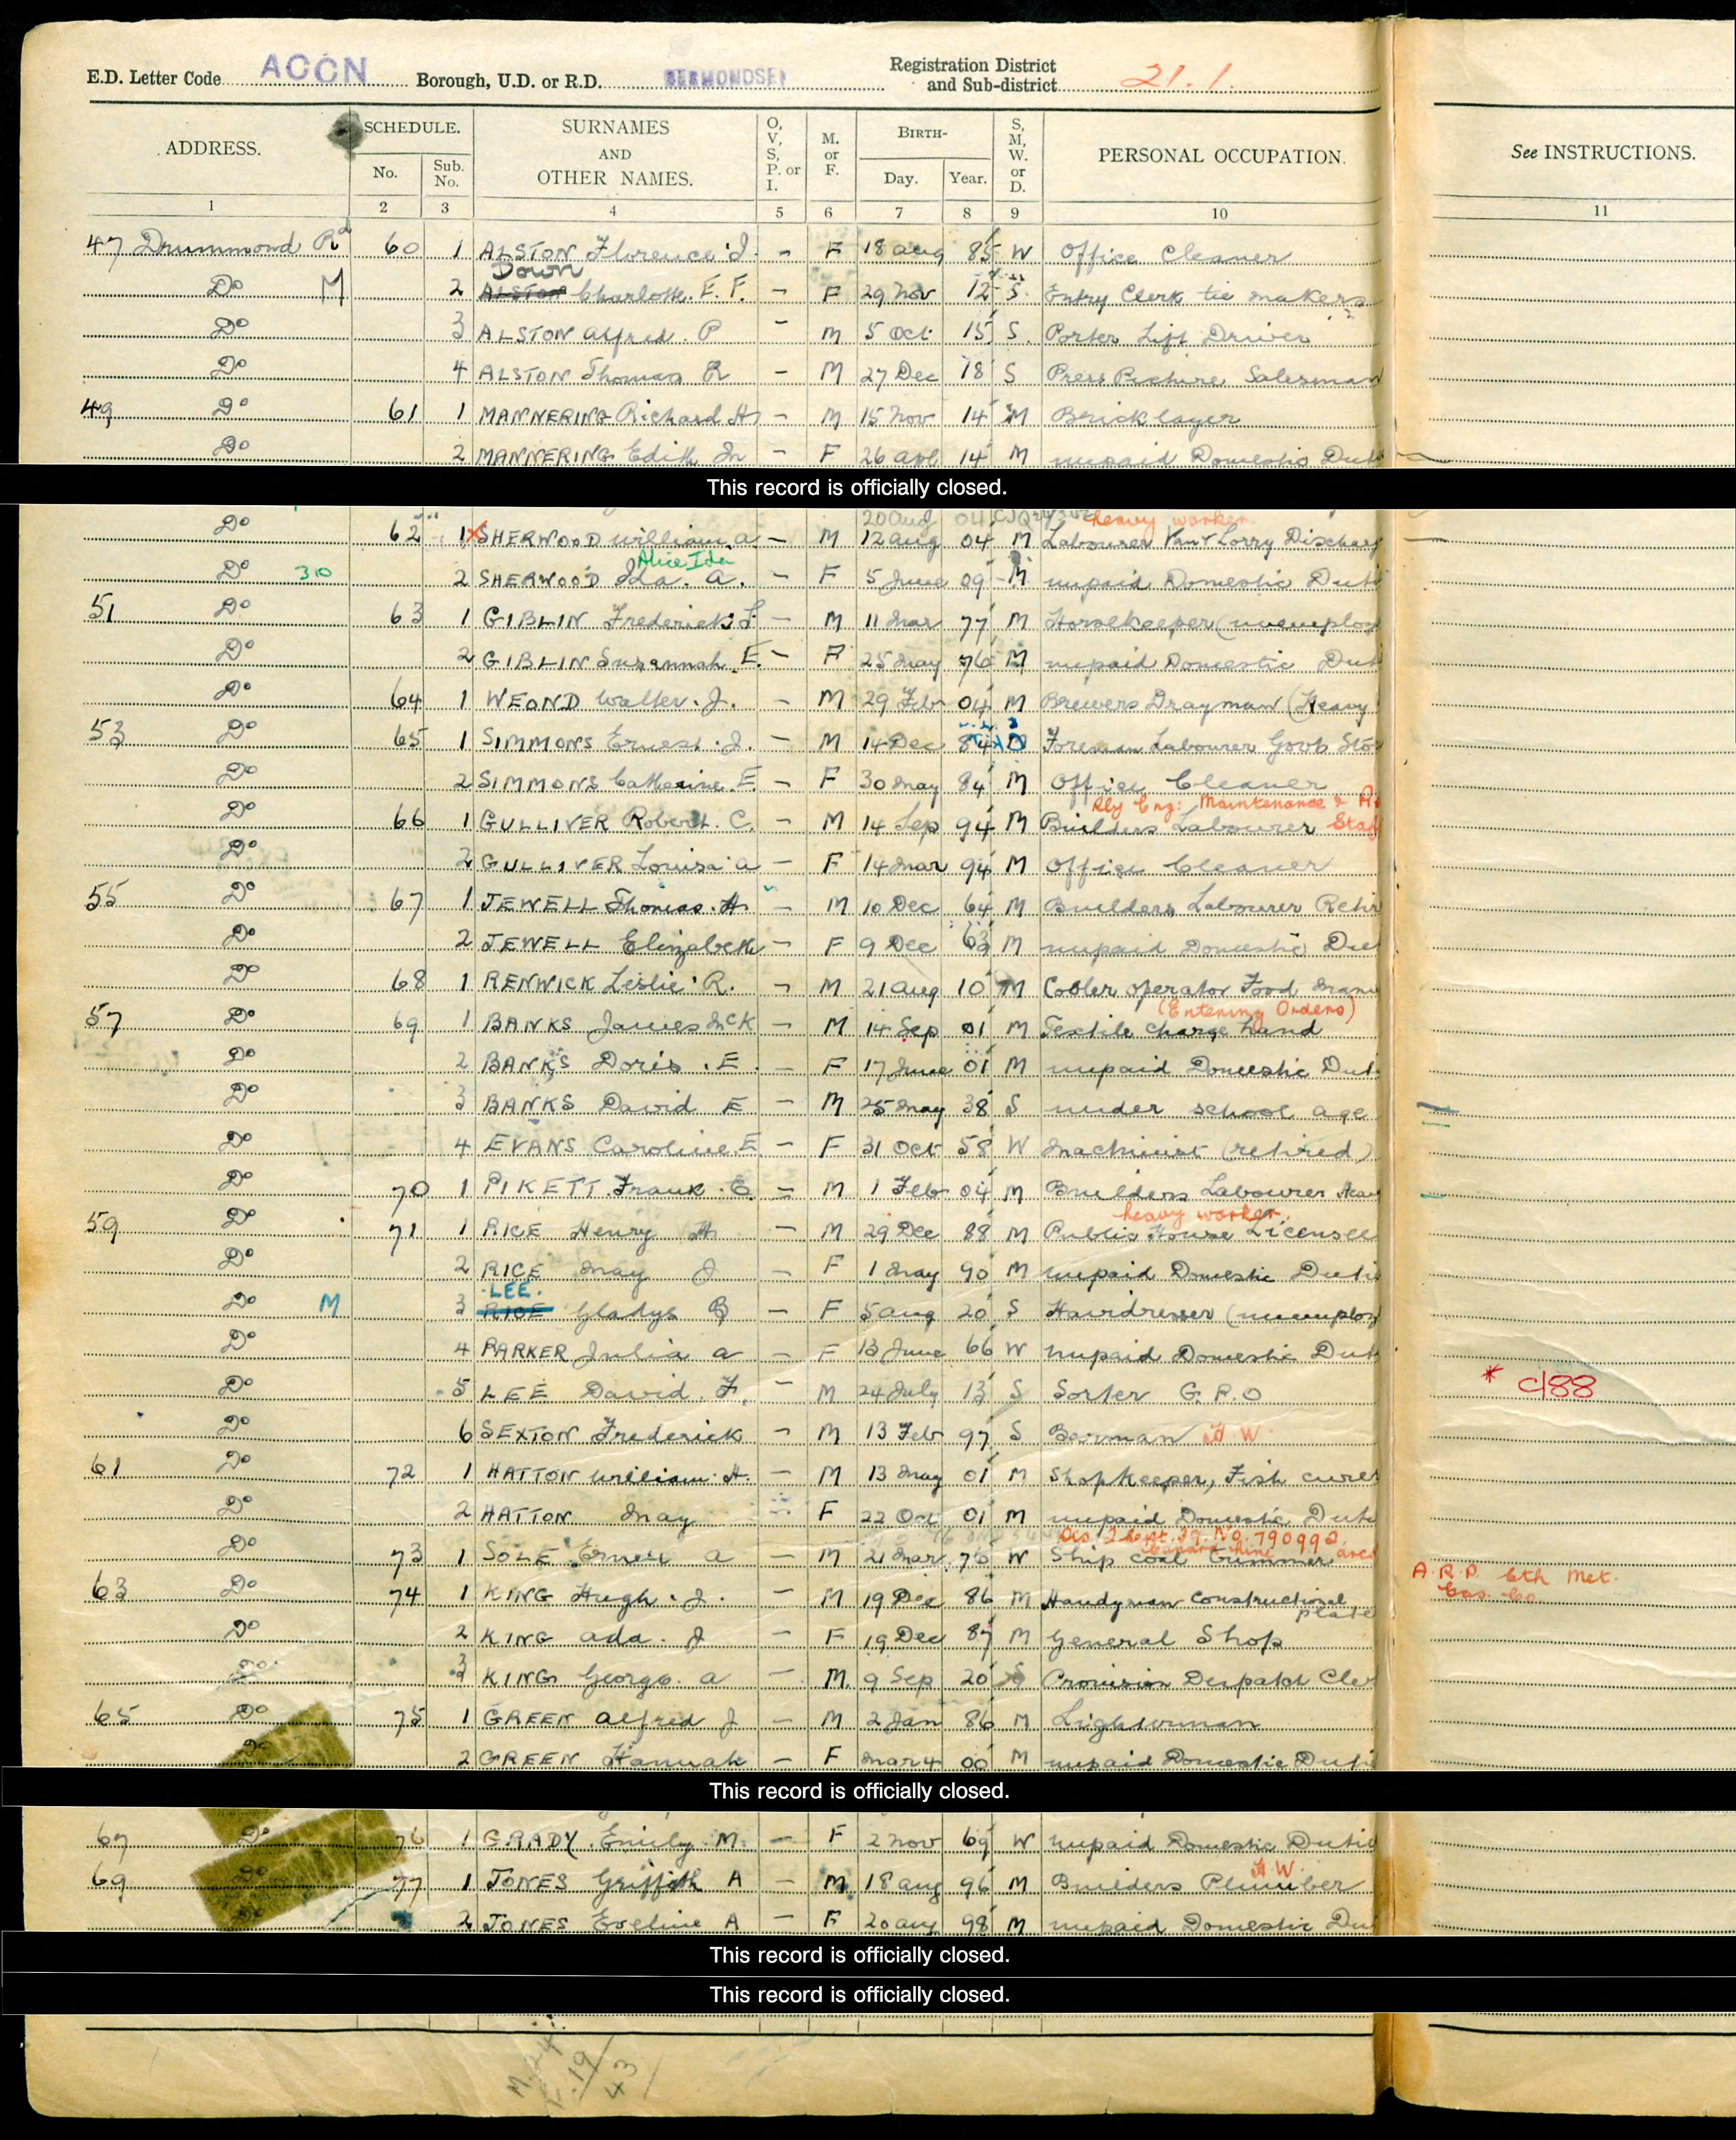 E.D. Letter Code AOCN Borough, U.D. or R.D. BERMONDSEY Registration District and Sub-district 21.1.
ADDRESS. SCHEDULE. No. Sub. No. SURNAMES AND OTHER NAMES. O, V, S, P. or I. M. or F. BIRTH- Day. Year. S, M, W. or D. PERSONAL OCCUPATION. See INSTRUCTIONS.
1 2 3 4 5 6 7 8 9 10 11
47 Drummond Rd 60 1 ALSTON Florence J. - F 18 Aug 85 W Office Cleaner
Down
Do M 2 ALSTON Charlotte. E. F. - F 29 Nov 12 S. Entry Clerk tie makers
Do 3 ALSTON Alfred. P - M 5 Oct 15 S. Porter Lift Driver
Do 4 ALSTON Thomas R - M 27 Dec 18 S Press Picture Salesman
49 Do 61 1 MANNERING Richard H - M 15 Nov 14 M Bricklayer
Do 2 MANNERING Edith M - F 26 Apl 14 M unpaid Domestic Duti
This record is officially closed.
20 Aug 04 heavy worker
Do 62 1 X SHERWOOD William. A - M 12 Aug 04 M Labourer Van & Lorry Discharg
Alice Ida
Do 310 2 SHERWOOD Ida. A. - F 5 June 09 M unpaid Domestic Duti
51 Do 63 1 GIBLIN Frederick. - M 11 Mar 77 M Horsekeeper (unemploy
Do 2 GIBLIN Susannah. E. - F 25 May 76 M unpaid Domestic Dut
Do 64 1 WEOND Walter. J. - M 29 Feb 04 M Brewers Drayman (Heavy
53 Do 65 1 SIMMONS Ernest. J. - M 14 Dec 84 Foreman Labourer Govt Sto
Do 2 SIMMONS Catherine. E. - F 30 May 84 M Office Cleaner
Rly Eng: Maintenance &
Do 66 1 GULLIVER Robert. C. - M 14 Sep 94 M Builders Labourer Staf
Do 2 GULLIVER Louisa A - F 14 Mar 94 M Office Cleaner
55 Do 67 1 JEWELL Thomas. H - M 10 Dec 64 M Builders Labourer Retir
Do 2 JEWELL Elizabeth - F 9 Dec 63 M unpaid Domestic Dut
Do 68 1 RENWICK Leslie R. - M 21 Aug 10 M Cooler operator Food Manu
(Entering Orders)
57 Do 69 1 BANKS James McK - M 14 Sep 01 M Textile Charge hand
Do 2 BANKS Doris. E. - F 17 June 01 M unpaid Domestic Duti
Do 3 BANKS David E - M 25 May 38 S under school age
Do 4 EVANS Caroline. E - F 31 Oct 58 W Machinist (retired)
Do 70 1 PIKETT Frank. E. - M 1 Feb 04 M Builders Labourer Heav
heavy worker.
59 Do 71 1 RICE Henry H - M 29 Dec 88 M Public House Licensee
Do 2 RICE May J - F 1 May 90 M unpaid Domestic Duti
LEE.
Do M 3 RICE Gladys B - F 5 Aug 20 S Hairdresser (unemploy
Do 4 PARKER Julia A - F 13 June 66 W unpaid Domestic Duti
Do 5 LEE David. F. - M 24 July 13 S Sorter G.P.O * C188
Do 6 SEXTON Frederick - M 13 Feb 97 S Barman H.W.
61 Do 72 1 HATTON William. H. - M 13 May 01 M Shopkeeper, Fish curer
Do 2 HATTON May F 22 Oct 01 M unpaid Domestic Duti
Dis. 2 Sept. 39. No 790992.
Do 73 1 SOLE Ernest A - M 21 Mar 76 W Ship coal trimmer
A.R.P. 6th Met. Gas. Co.
63 Do 74 1 KING Hugh. J. - M 19 Dec 86 M Handyman Constructional
plate
Do 2 KING Ada. J - F 19 Dec 87 M General Shop
Do 3 KING George. A - M. 9 Sep 20 S Provision Despatch Cler
65 Do 75 1 GREEN Alfred J - M 2 Jan 86 M Lighterman
Do 2 GREEN Hannah - F Mar 4 00 M unpaid Domestic Duti
This record is officially closed.
67 Do 76 1 GRADY. Emily. M. - F 2 Nov 69 W unpaid Domestic Dutie
H.W.
69 Do 77 1 JONES Griffith A - M 18 Aug 96 M Builders Plumber
Do 2 JONES Eveline A - F 20 Aug 98 M unpaid Domestic Du
This record is officially closed.
This record is officially closed.
M. 24
F. 19
43